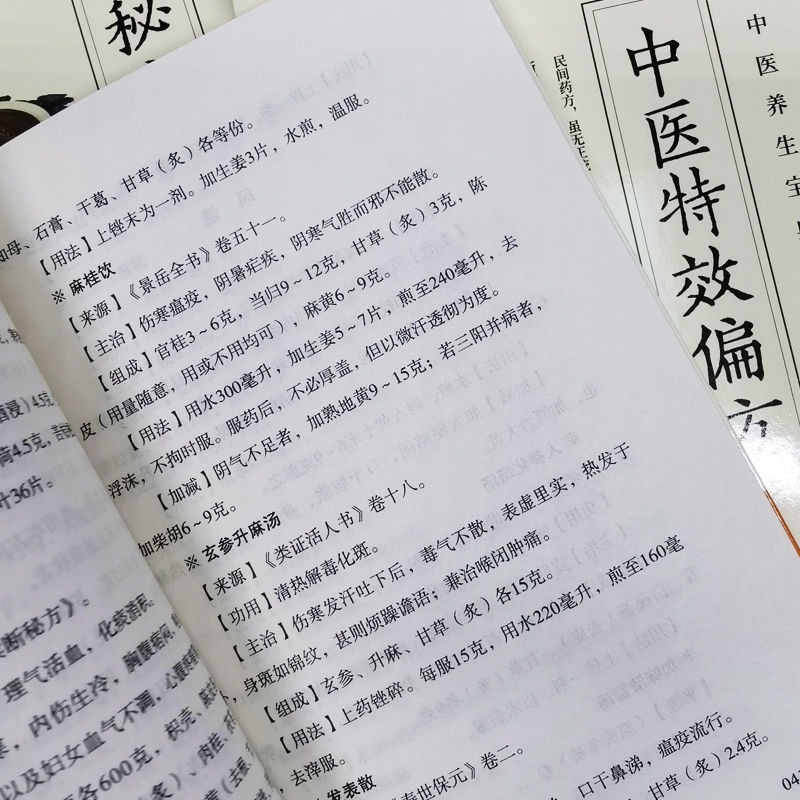 知母、石膏、干葛、甘草（炙）各等份。
【用法】上锉末为一剂。加生姜3片，水煎，温服。
※ 麻桂饮
【来源】《景岳全书》卷五十一。
【主治】伤寒瘟疫，阴暑疟疾，阴寒气胜而邪不能散。
【组成】官桂3～6克，当归9～12克，甘草（炙）3克，陈
皮（用量随意，用或不用均可），麻黄6～9克。
【用法】用水300毫升，加生姜5～7片，煎至240毫升，去
浮沫，不拘时服。服药后，不必厚盖，但以微汗透彻为度。
【加减】阴气不足者，加熟地黄9～15克；若三阳并病者，
加柴胡6～9克。
※ 玄参升麻汤
【来源】《类证活人书》卷十八。
【功用】清热解毒化斑。
【主治】伤寒发汗吐下后，毒气不散，表虚里实，热发于
，身斑如锦纹，甚则烦躁谵语；兼治喉闭肿痛。
【组成】玄参、升麻、甘草（炙）各15克。
【用法】上药锉碎。每服15克，用水220毫升，煎至160毫
，去滓服。
发表散
寿世保元》卷二。
口干鼻涕，瘟疫流行。
甘草（炙）24克。
04
浸）45克
荷45克，
叶36片：
断秘方》。
理气活血，化痰消积。
，内伤生冷，胸腹痞闷，
以及妇女血气不调，心腹
各600克，枳壳、
）、肉桂、
秘
民间药方，虽无正
中医特效偏方
中医养生宝